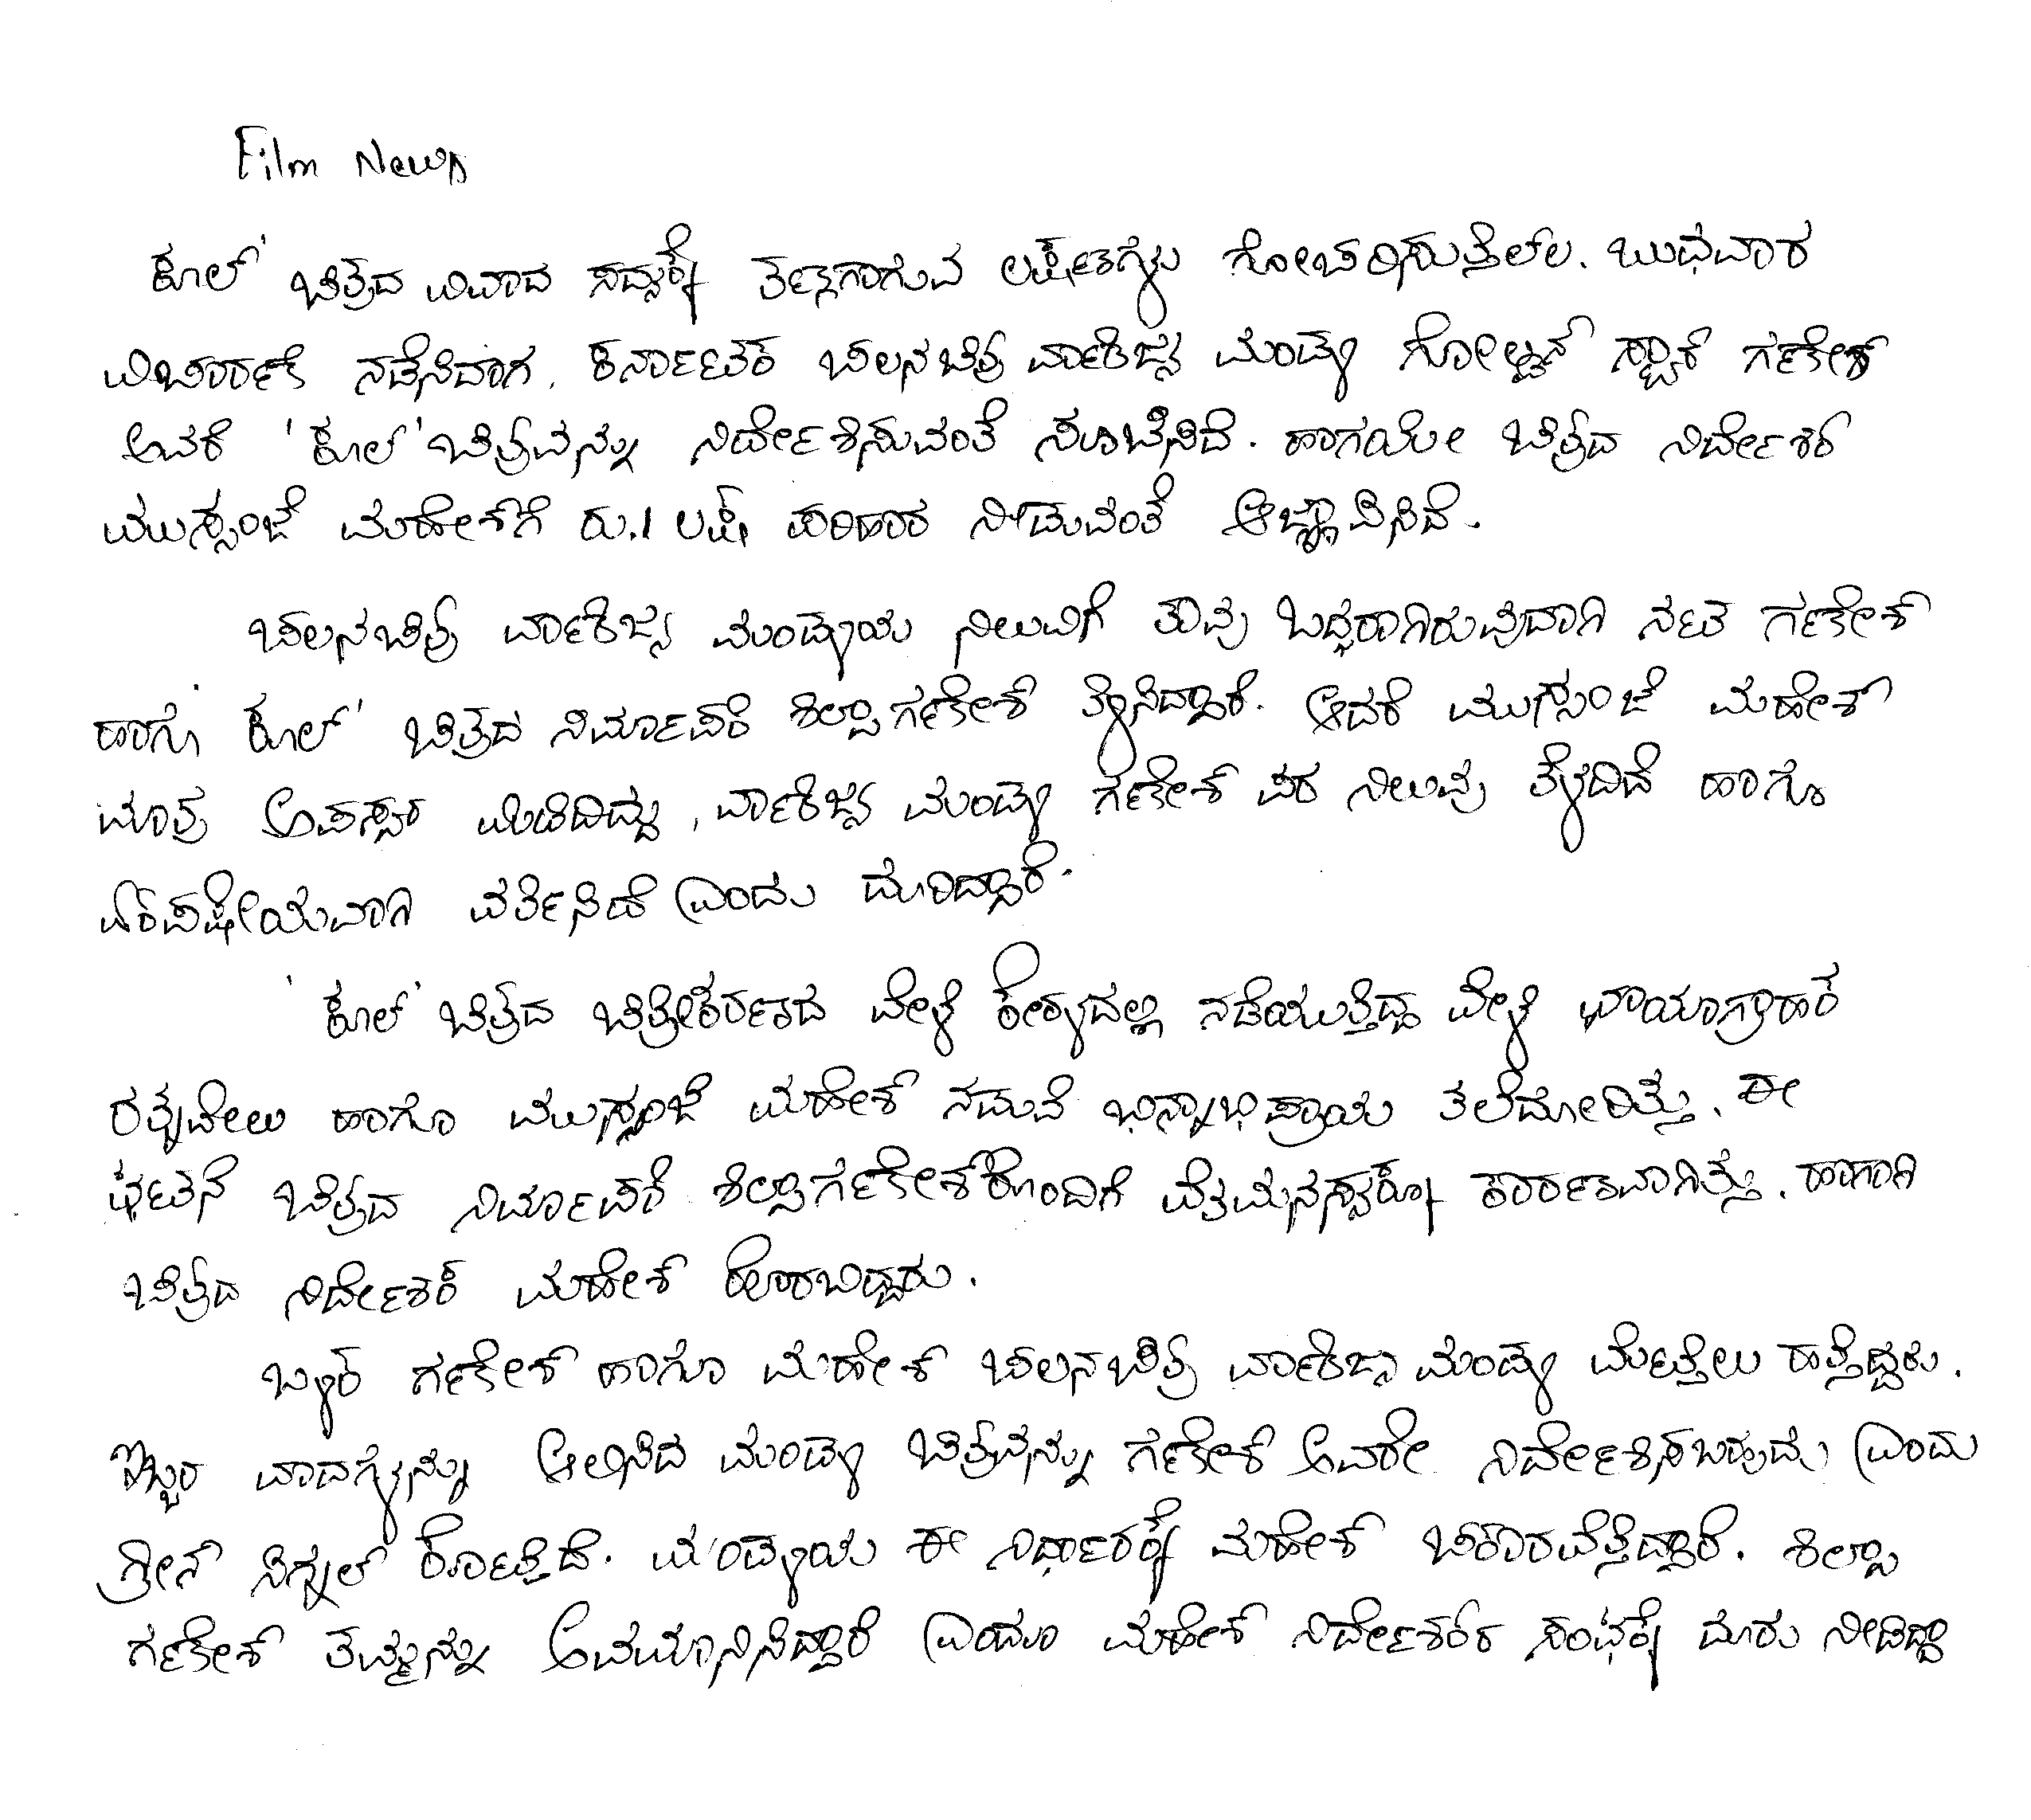 Film News
ಕೂಲ್' ಚಿತ್ರದ ವಿವಾದ ಸದ್ಯಕ್ಕೆ ತಣ್ಣಗಾಗುವ ಲಕ್ಷಣಗಳು ಗೋಚರಿಸುತ್ತಿಲ್ಲ. ಬುಧವಾರ
ವಿಚಾರಣೆ ನಡೆಸಿದಾಗ, ಕರ್ನಾಟಕ ಚಲನಚಿತ್ರ ವಾಣಿಜ್ಯ ಮಂಡಳಿ ಗೋಲ್ಡನ್ ಸ್ಟಾರ್ ಗಣೇಶ್
ಅವರೆ 'ಕೂಲ್' ಚಿತ್ರವನ್ನು ನಿರ್ದೇಶಿಸುವಂತೆ ಸೂಚಿಸಿದೆ. ಹಾಗೆಯೇ ಚಿತ್ರದ ನಿರ್ದೇಶಕ
ಮುಸ್ಸಂಜೆ ಮಹೇಶ್‌ಗೆ ರು.1 ಲಕ್ಷ ಪರಿಹಾರ ನೀಡುವಂತೆ ಆಜ್ಞಾಪಿಸಿದೆ.
ಚಲನಚಿತ್ರ ವಾಣಿಜ್ಯ ಮಂಡಳಿಯ ನಿಲುವಿಗೆ ತಾವು ಬದ್ಧರಾಗಿರುವುದಾಗಿ ನಟ ಗಣೇಶ್
ಹಾಗೂ 'ಕೂಲ್' ಚಿತ್ರದ ನಿರ್ಮಾಪಕಿ ಶಿಲ್ಪಾಗಣೇಶ್ ತಿಳಿಸಿದ್ದಾರೆ. ಆದರೆ ಮುಸ್ಸಂಜೆ ಮಹೇಶ್
ಮಾತ್ರ ಅಪಸ್ವರ ಮಿಡಿದಿದ್ದು, ವಾಣಿಜ್ಯ ಮಂಡಳಿ ಗಣೇಶ್ ಪರ ನಿಲುವು ತಳೆದಿದೆ ಹಾಗೂ
ಏಕಪಕ್ಷೀಯವಾಗಿ ವರ್ತಿಸಿದೆ ಎಂದು ದೂರಿದ್ದಾರೆ.
'ಕೂಲ್' ಚಿತ್ರದ ಚಿತ್ರೀಕರಣದ ವೇಳೆ ಕೇರಳದಲ್ಲಿ ನಡೆಯುತ್ತಿದ್ದ ವೇಳೆ ಛಾಯಾಗ್ರಾಹಕ
ರತ್ನವೇಲು ಹಾಗೂ ಮುಸ್ಸಂಜೆ ಮಹೇಶ್ ನಡುವೆ ಭಿನ್ನಾಭಿಪ್ರಾಯ ತಲೆದೋರಿತ್ತು. ಈ
ಘಟನೆ ಚಿತ್ರದ ನಿರ್ಮಾಪಕಿ ಶಿಲ್ಪಾಗಣೇಶ್‌ರೊಂದಿಗೆ ವೈಮನಸ್ಯಕ್ಕೂ ಕಾರಣವಾಗಿತ್ತು. ಹಾಗಾಗಿ
ಚಿತ್ರದ ನಿರ್ದೇಶಕ ಮಹೇಶ್ ಹೊರಬಿದ್ದರು.
ಬಳಿಕ ಗಣೇಶ್ ಹಾಗೂ ಮಹೇಶ್ ಚಲನಚಿತ್ರ ವಾಣಿಜ್ಯ ಮಂಡಳಿ ಮೆಟ್ಟಿಲು ಹತ್ತಿದ್ದರು.
ಇಬ್ಬರ ವಾದಗಳನ್ನು ಆಲಿಸಿದ ಮಂಡಳಿ ಚಿತ್ರವನ್ನು ಗಣೇಶ್ ಅವರೇ ನಿರ್ದೇಶಿಸಬಹುದು ಎಂದು
ಗ್ರೀನ್ ಸಿಗ್ನಲ್ ಕೊಟ್ಟಿದೆ. ಮಂಡಳಿಯ ಈ ನಿರ್ಧಾರಕ್ಕೆ ಮಹೇಶ್ ಚಕಾರವೆತ್ತಿದ್ದಾರೆ. ಶಿಲ್ಪಾ
ಗಣೇಶ್ ತಮ್ಮನ್ನು ಅವಮಾನಿಸಿದ್ದಾರೆ ಎಂದೂ ಮಹೇಶ್ ನಿರ್ದೇಶಕರ ಸಂಘಕ್ಕೆ ದೂರು ನೀಡಿದ್ದಾ